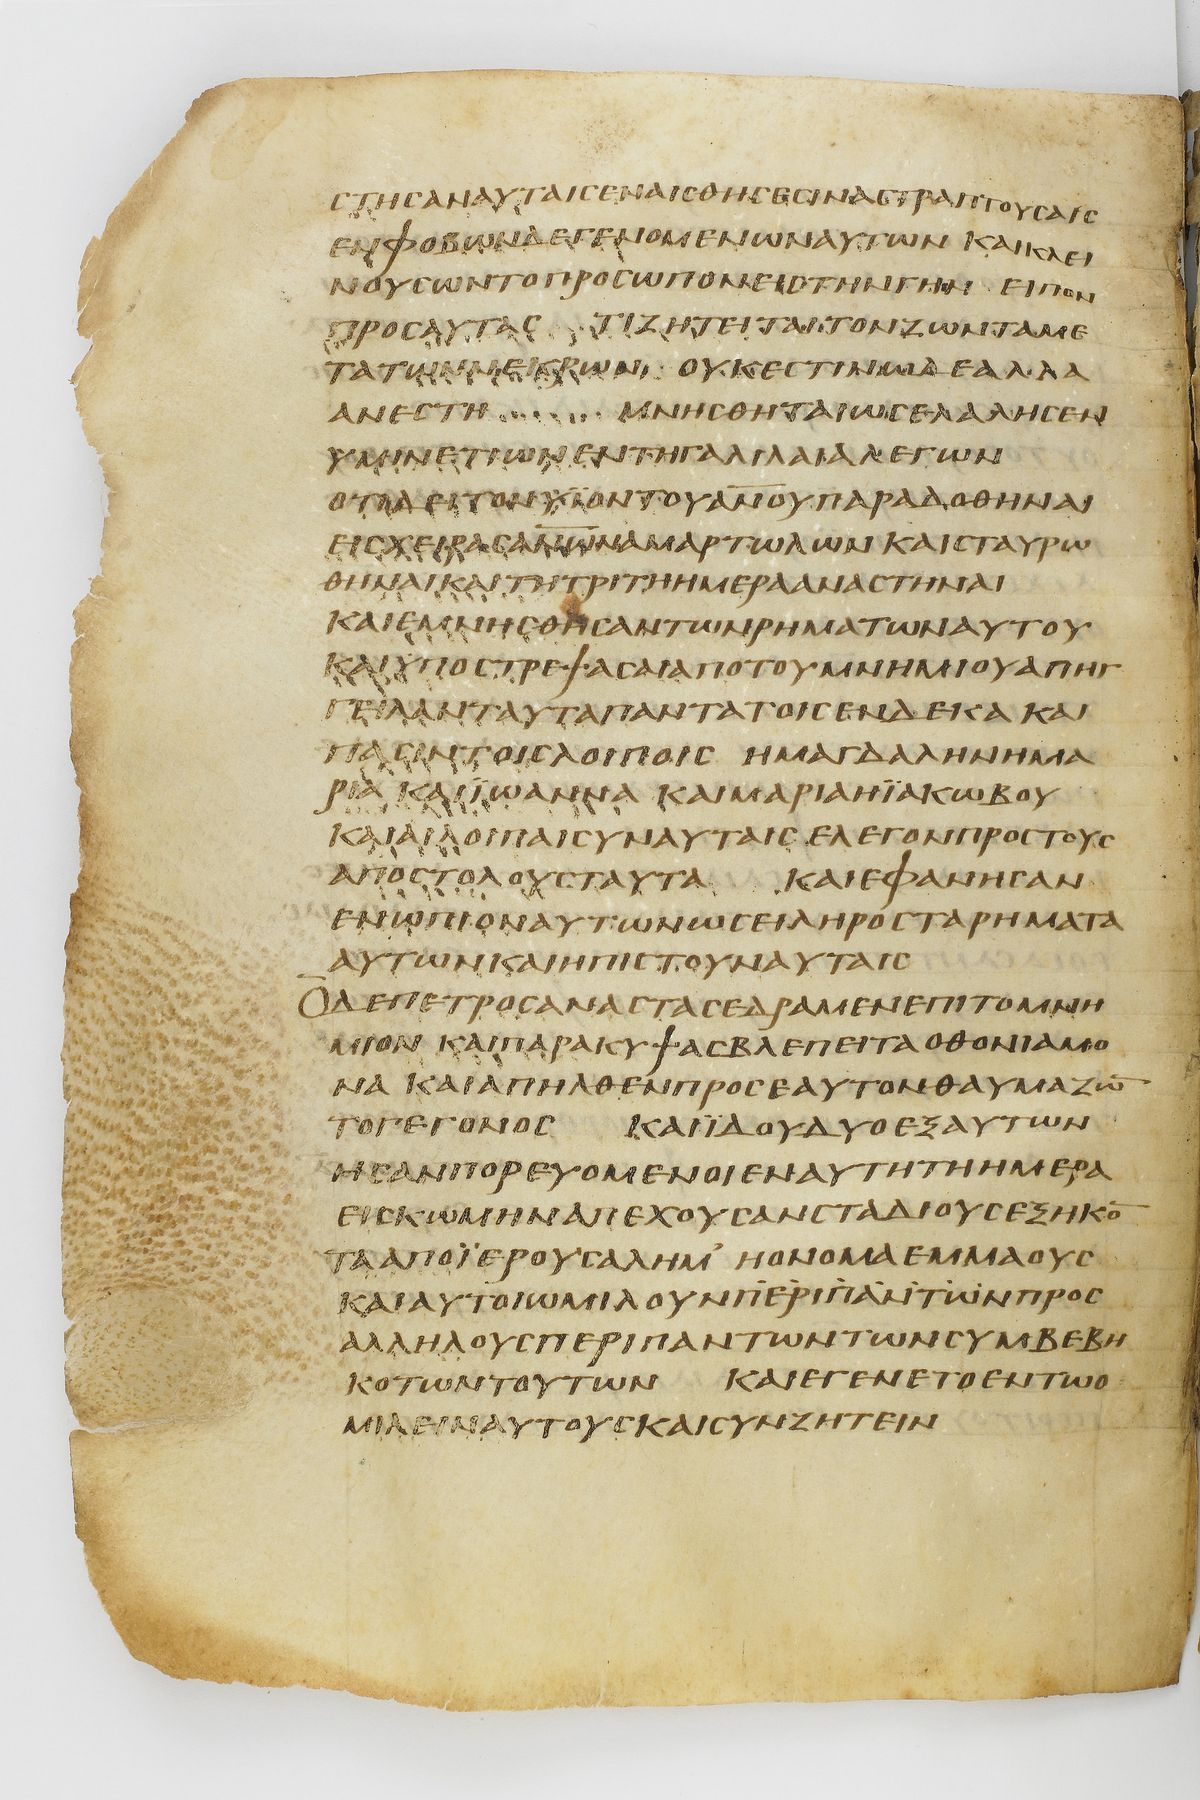 ϹΤΗϹΑΝΑΥΤΑΙϹΕΝΑΙϹΘΗϹΕϹΙΝΑϹΤΡΑΠΤΟΥϹΑΙϹ
ΕΝΦΟΒΩΝΔΕΓΕΝΟΜΕΝΩΝΑΥΤΩΝ ΚΑΙΚΛΕΙ
ΝΟΥϹΩΝΤΟΠΡΟϹΩΠΟΝΕΙϹΤΗΝΓΗΝ ΕΙΠΟΝ
ΠΡΟϹΑΥΤΑϹ ΤΙΖΗΤΕΙΤΑΙΤΟΝΖΩΝΤΑΜΕ
ΤΑΤΩΝΝΕΚΡΩΝ ΟΥΚΕϹΤΙΝΩΔΕΑΛΛΑ
ΑΝΕϹΤΗ ΜΝΗϹΘΗΤΑΙΩϹΕΛΑΛΗϹΕΝ
ΥΜΙΝΕΤΙΩΝΕΝΤΗΓΑΛΙΛΑΙΑΛΕΓΩΝ
ΟΤΙΔΕΙΤΟΝΥΙΟΝΤΟΥΑΝ̅Ο̅Υ̅ΠΑΡΑΔΟΘΗΝΑΙ
ΕΙϹΧΕΙΡΑϹΑΝ̅Ω̅Ν̅ΑΜΑΡΤΩΛΩΝ ΚΑΙϹΤΑΥΡΩ
ΘΗΝΑΙΚΑΙΤΗΤΡΙΤΗΗΜΕΡΑΑΝΑϹΤΗΝΑΙ
ΚΑΙΕΜΝΗϹΘΗϹΑΝΤΩΝΡΗΜΑΤΩΝΑΥΤΟΥ
ΚΑΙΥΠΟϹΤΡΕΨΑϹΑΙΑΠΟΤΟΥΜΝΗΜΙΟΥΑΠΗΓ
ΓΕΙΛΑΝΤΑΥΤΑΠΑΝΤΑΤΟΙϹΕΝΔΕΚΑ ΚΑΙ
ΠΑϹΙΝΤΟΙϹΛΟΙΠΟΙϹ ΗΜΑΓΔΑΛΗΝΗΜΑ
ΡΙΑ ΚΑΙΪΩΑΝΝΑ ΚΑΙΜΑΡΙΑΗΪΑΚΩΒΟΥ
ΚΑΙΑΙΛΟΙΠΑΙϹΥΝΑΥΤΑΙϹΕΛΕΓΟΝΠΡΟϹΤΟΥϹ
ΑΠΟϹΤΟΛΟΥϹΤΑΥΤΑ ΚΑΙΕΦΑΝΗϹΑΝ
ΕΝΩΠΙΟΝΑΥΤΩΝΩϹΕΙΛΗΡΟϹΤΑΡΗΜΑΤΑ
ΑΥΤΩΝΚΑΙΗΠΙϹΤΟΥΝΑΥΤΑΙϹ
ΟΔΕΠΕΤΡΟϹΑΝΑϹΤΑϹΕΔΡΑΜΕΝΕΠΙΤΟΜΝΗ
ΜΙΟΝ ΚΑΙΠΑΡΑΚΥΨΑϹΒΛΕΠΕΙΤΑΟΘΟΝΙΑΜΟ
ΝΑ ΚΑΙΑΠΗΛΘΕΝΠΡΟϹΕΑΥΤΟΝΘΑΥΜΑΖΩ̅
ΤΟΓΕΓΟΝΟϹ ΚΑΙΪΔΟΥΔΥΟΕΞΑΥΤΩΝ
ΗϹΑΝΠΟΡΕΥΟΜΕΝΟΙΕΝΑΥΤΗΤΗΗΜΕΡΑ
ΕΙϹΚΩΜΗΝΑΠΕΧΟΥϹΑΝϹΤΑΔΙΟΥϹΕΞΗΚΟ̅
ΤΑΑΠΟΪΕΡΟΥϹΑΛΗΜ’ ΗΟΝΟΜΑΕΜΜΑΟΥϹ
ΚΑΙΑΥΤΟΙΩΜΙΛΟΥΝΠ̇Ε̇Ρ̇Ι̇Π̇Α̇Ν̇Τ̇Ω̇Ν̇ΠΡΟϹ
ΑΛΛΗΛΟΥϹΠΕΡΙΠΑΝΤΩΝΤΩΝϹΥΜΒΕΒΗ
ΚΟΤΩΝΤΟΥΤΩΝ ΚΑΙΕΓΕΝΕΤΟΕΝΤΩΟ
ΜΙΛΕΙΝΑΥΤΟΥϹΚΑΙϹΥΝΖΗΤΕΙΝ